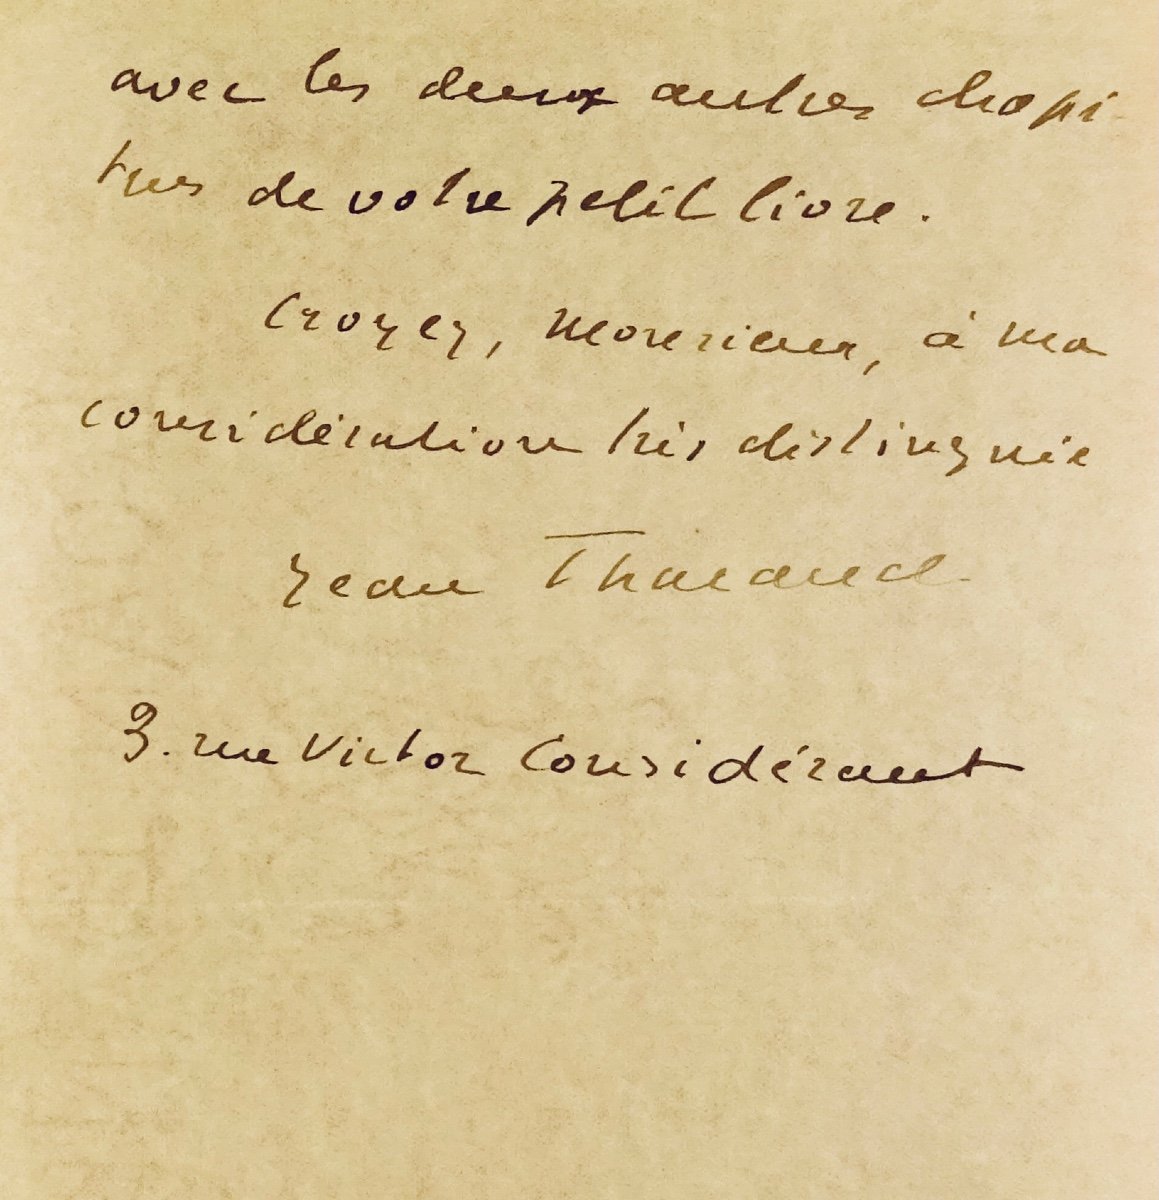 avec les deux autres chapi-
tres de votre petit livre.
Croyez, Monsieur, à ma
considération très distinguée
Jean Tharaud
3. rue Victor Considérant